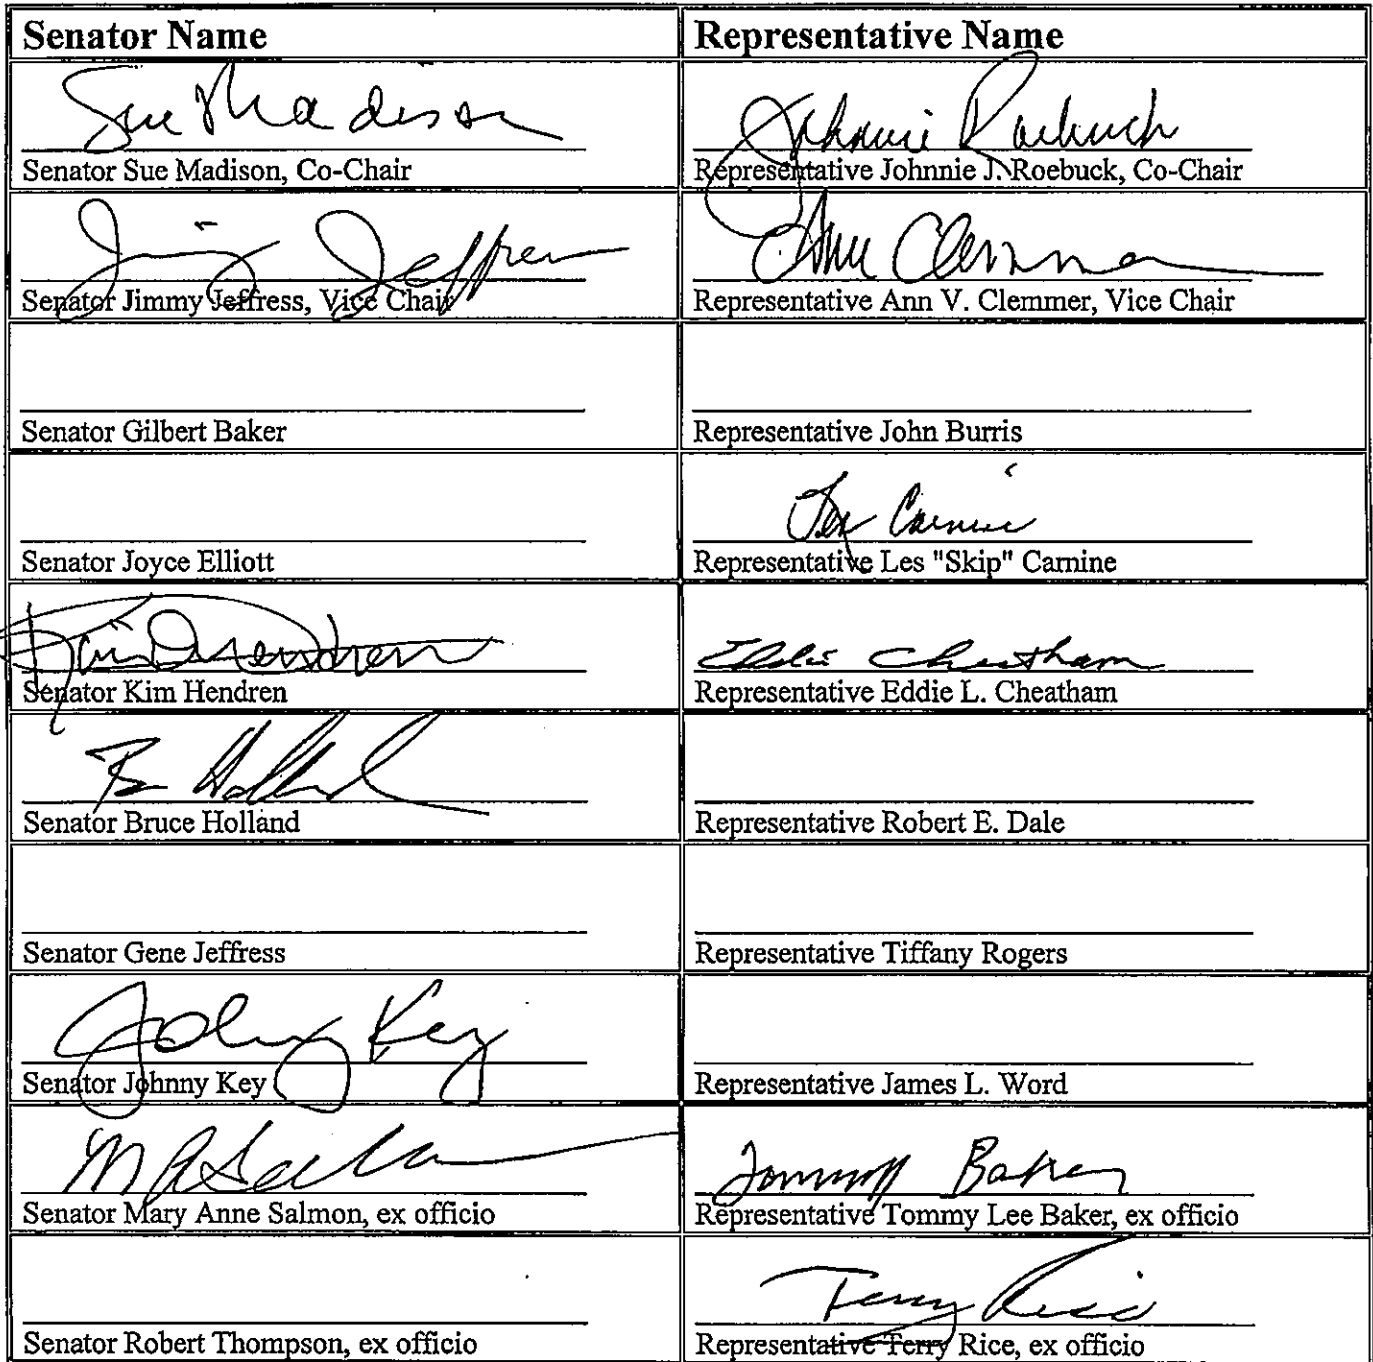 Senator Name
Representative Name
Sue Madison
Senator Sue Madison, Co-Chair
Johnnie Roebuck
Representative Johnnie J. Roebuck, Co-Chair
Jimmy Jeffress
Senator Jimmy Jeffress, Vice Chair
Ann Clemmer
Representative Ann V. Clemmer, Vice Chair
Senator Gilbert Baker
Representative John Burris
Senator Joyce Elliott
Les Carnine
Representative Les "Skip" Carnine
Kim Hendren
Senator Kim Hendren
Eddie Cheatham
Representative Eddie L. Cheatham
Holland
Senator Bruce Holland
Representative Robert E. Dale
Senator Gene Jeffress
Representative Tiffany Rogers
Johnny Key
Senator Johnny Key
Representative James L. Word
MASalmon
Senator Mary Anne Salmon, ex officio
Tommy Baker
Representative Tommy Lee Baker, ex officio
Senator Robert Thompson, ex officio
Terry Rice
Representative Terry Rice, ex officio